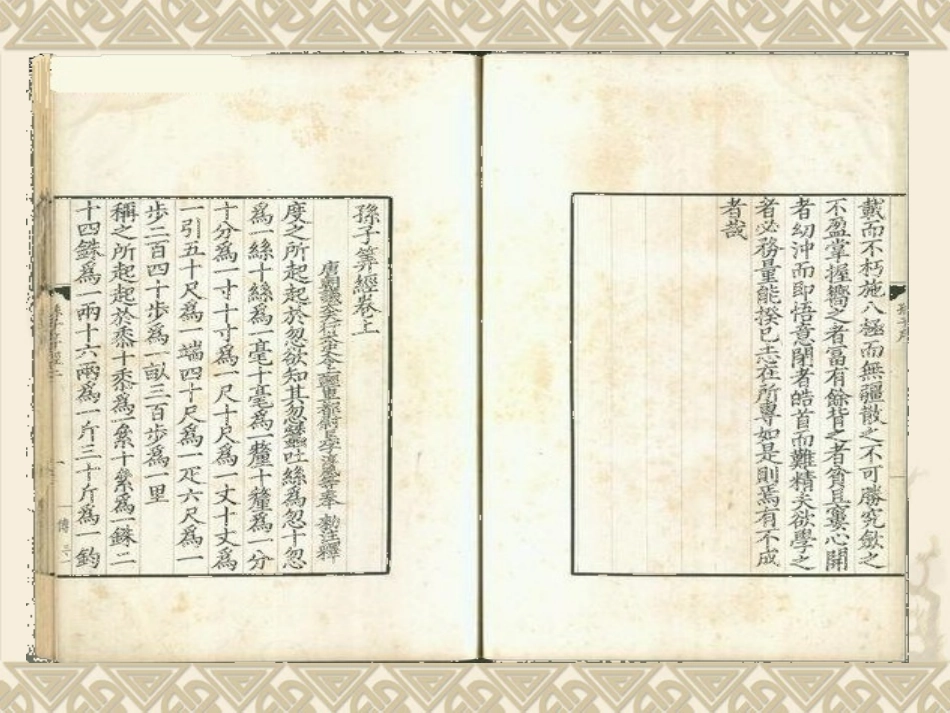 戴而不朽施八極而無疆散之不可勝究斂之
不盈掌握嚮之者富有餘背之者貧且窶心開
者幼沖而即悟意閉者皓首而難精夫欲學之
者必務量能揆己志在所專如是則焉有不成
者哉
孫子算經卷上
唐朝議大夫行太史令上輕車都尉臣李淳風等奉 勅注釋
度之所起起於忽欲知其忽蠶吐絲為忽十忽
為一絲十絲為一毫十毫為一釐十釐為一分
十分為一寸十寸為一尺十尺為一丈十丈為
一引五十尺為一端四十尺為一疋六尺為一
步二百四十步為一畝三百步為一里
稱之所起起於黍十黍為一絫十絫為一銖二
十四銖為一兩十六兩為一斤三十斤為一鈞